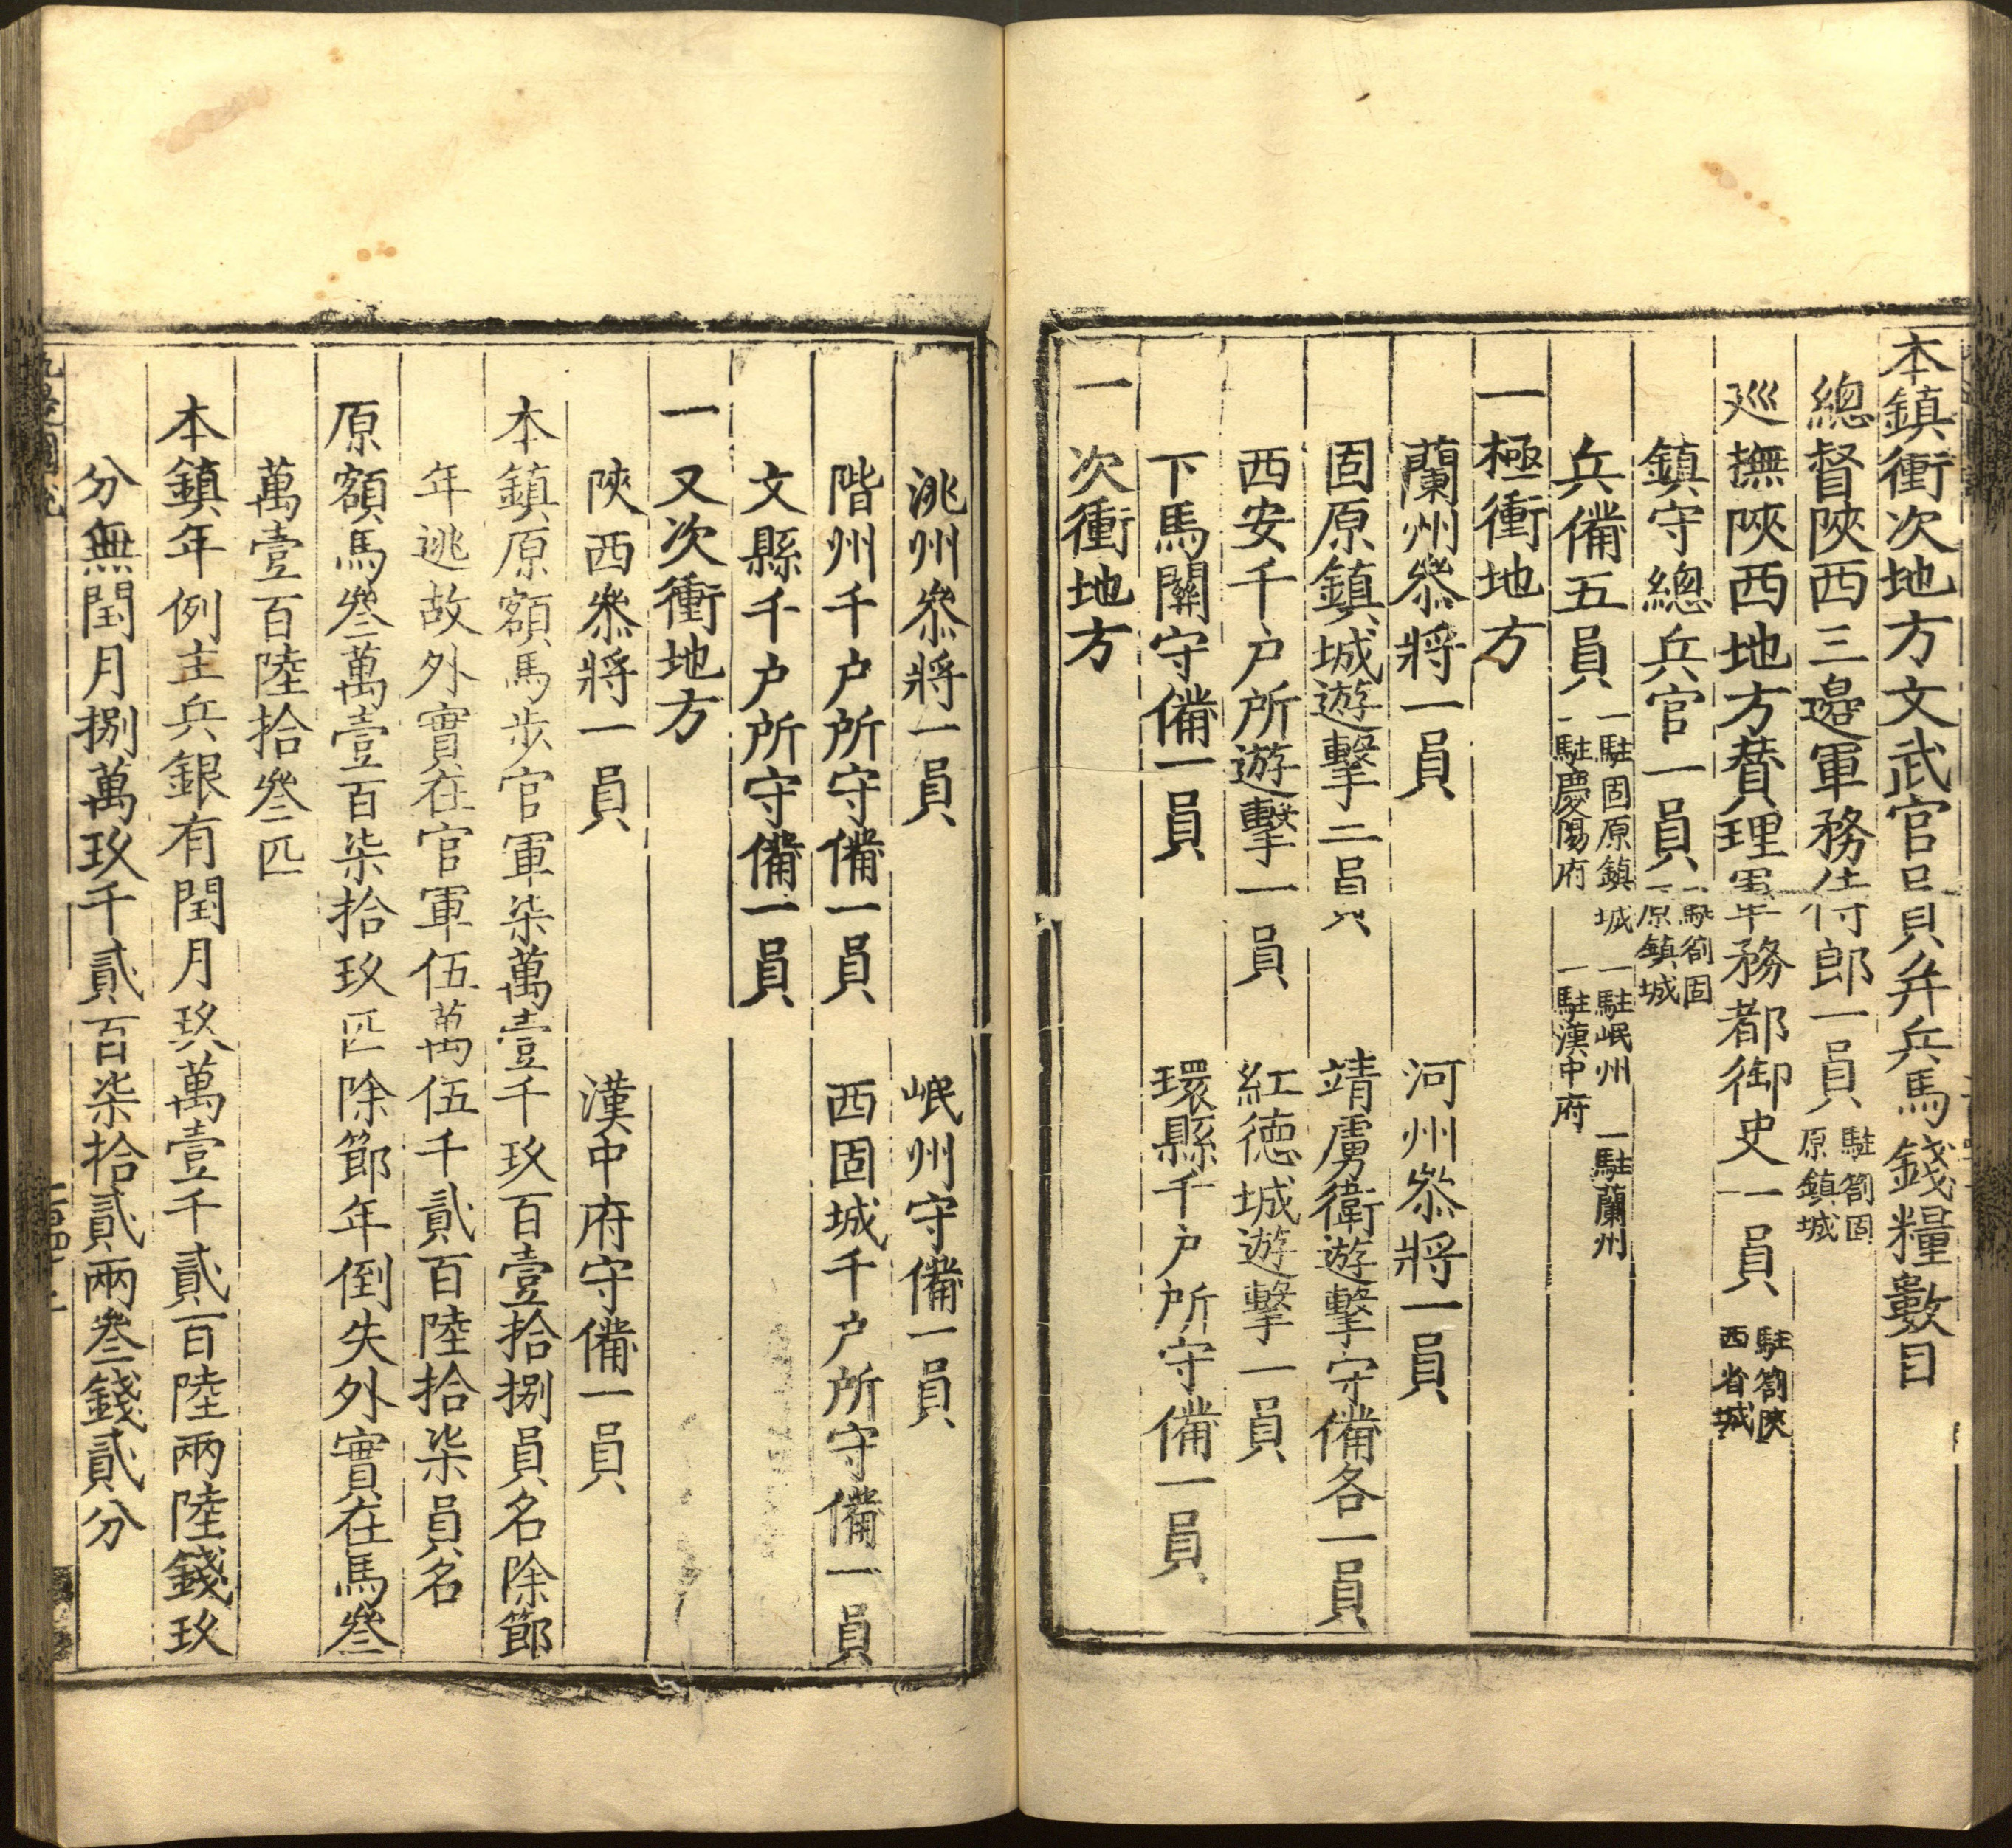 本鎮衝次地方文武官員并兵馬錢糧數目
總督陝西三邊軍務侍郎一員駐劄固原鎮城
廵撫陝西地方賛理軍務都御史一員駐劄陝西省城
鎮守總兵官一員駐劄固原鎮城
兵備五員一駐固原鎮城一駐岷州一駐蘭州一駐慶陽府一駐漢中府
一極衝地方
蘭州叅將一員 河州叅將一員
固原鎮城遊擊二員 靖虜衛遊擊守備各一員
西安千户所遊擊一員 紅德城遊擊一員
下馬關守備一員 環縣千户所守備一員
一次衝地方
洮州叅將一員 岷州守備一員
階州千户所守備一員 西固城千户所守備一員
文縣千户所守備一員
一又次衝地方
陝西叅將一員 漢中府守備一員
本鎮原額馬步官軍柒萬壹千玖百壹拾捌員名除節
年逃故外實在官軍伍萬伍千貳百陸拾柒員名
原額馬叁萬壹百柒拾玖匹除節年倒失外實在馬叁
萬壹百陸拾叁匹
本鎮年例主兵銀有閏月玖萬壹千貳百陸兩陸錢玖
分無閏月捌萬玖千貳百柒拾貳兩叁錢貳分